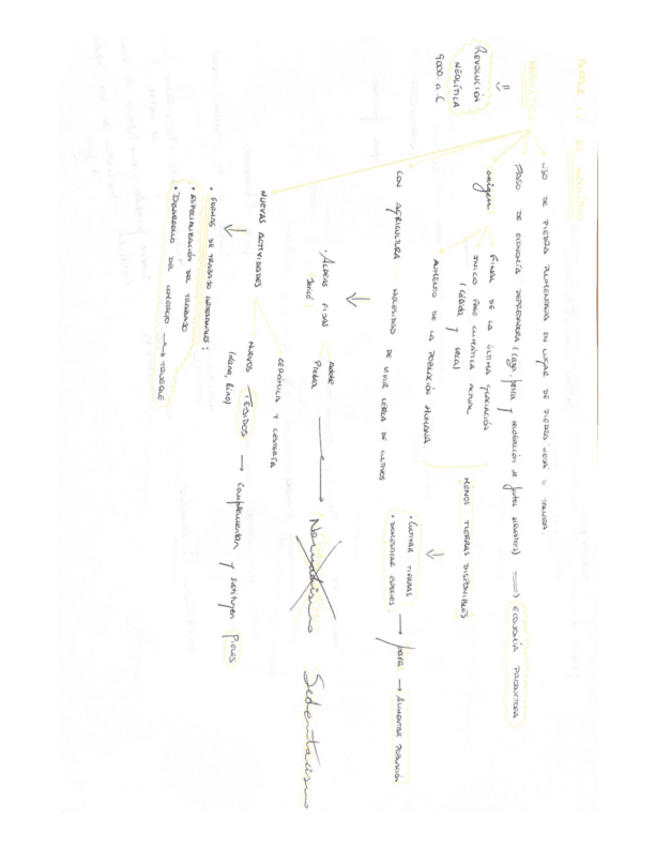 EL NEOLÍTICO
NEOLÍTICO
REVOLUCIÓN
NEOLÍTICA
9000 a.C
USO DE PIEDRA PULIMENTADA EN LUGAR DE PIEDRA O TALLADA.
PASO DE ECONOMÍA DEPREDADORA (caza, pesca y recolección de frutos silvestres) → ECONOMÍA PRODUCTORA
origen
FINAL DE LA ÚLTIMA GLACIACIÓN
INICIO FASE CLIMÁTICA ACTUAL
(Cálida y seca)
AUMENTO DE LA POBLACIÓN HUMANA
MENOS TIERRAS DISPONIBLES
• CULTIVAR TIERRAS
• DOMESTICAR ESPECIES. → para → AUMENTAR POBLACIÓN
CON AGRICULTURA NECESIDAD DE VIVIR CERCA DE CULTIVOS
• ALDEAS FIJAS
Jericó
adobe
Piedra
→ Nomadismo Sedentarismo
NUEVAS ACTIVIDADES
CERÁMICA Y CESTERÍA
NUEVOS TEJIDOS → complementan y sustituyen PIELES
(lana, lino)
• FORMAS DE TRABAJO ARTESANALES:
• ESPECIALIZACIÓN DEL TRABAJO
• DESARROLLO DEL COMERCIO → TRUEQUE